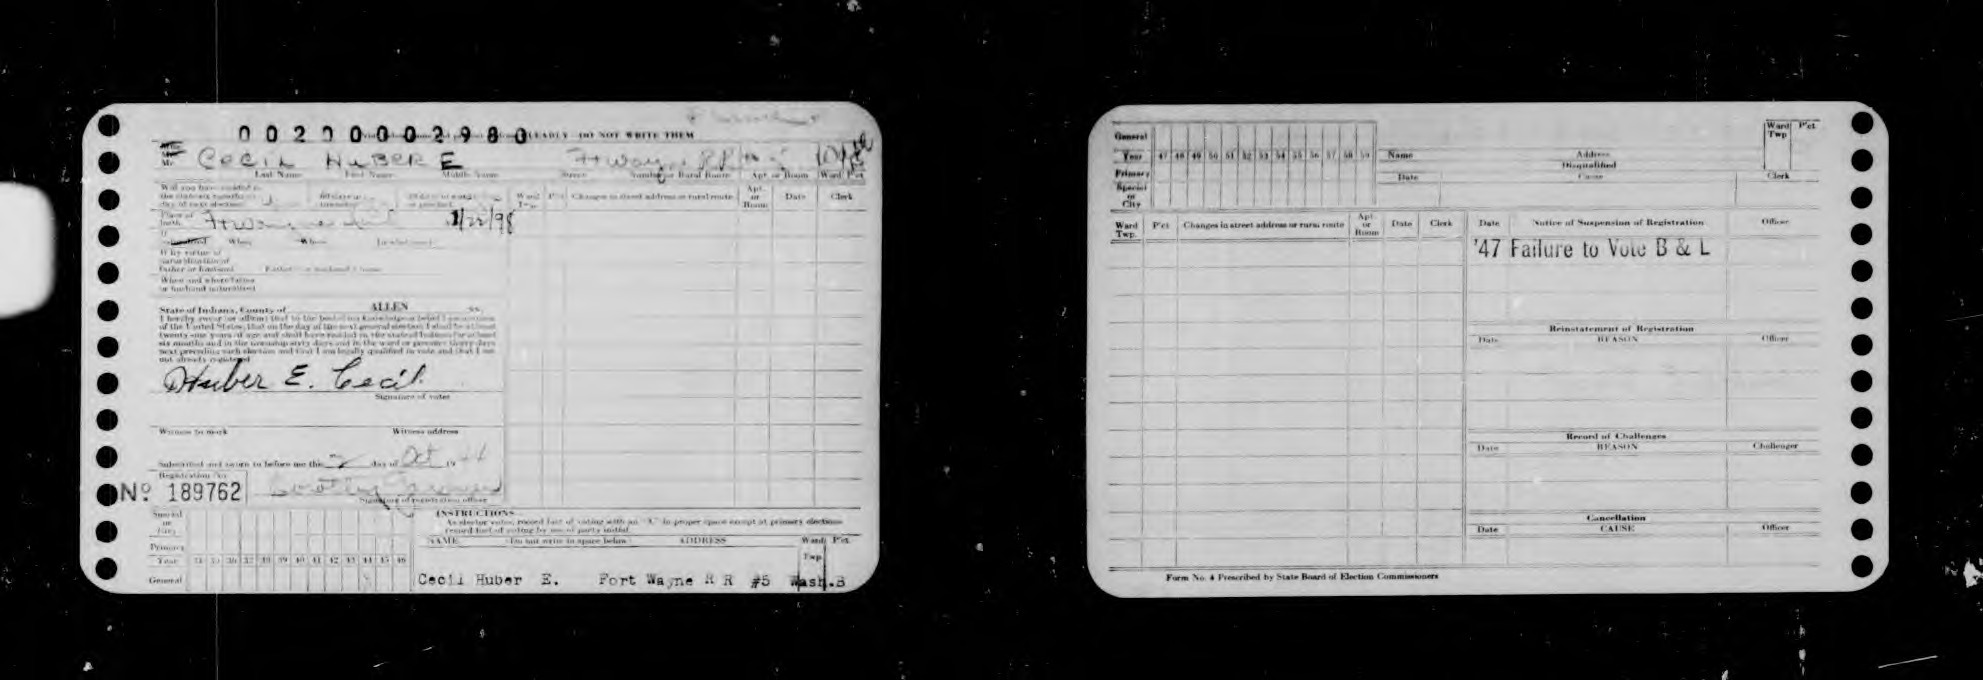 00200002980 CLEARLY DO NOT WRITE THEM
Mr. CECIL HUBER E Ft Wayne RR
Last Name First Name Middle Name Street Number or Rural Route Apt. or Room Ward Pct.
Ward Twp. Pct Changes in street address or rural route Apt. or Room Date Clerk
Place of birth Ft Wayne 1/22/98
If naturalized When Where
If by virtue of naturalization of father or husband
When and where father or husband naturalized
State of Indiana, County of ALLEN ss.
I hereby swear (or affirm) that to the best of my knowledge and belief I am a citizen
of the United States, that on the day of the next general election I shall be at least
twenty-one years of age and shall have resided in the state of Indiana for at least
six months and in the township sixty days and in the ward or precinct thirty days
next preceding such election and that I am legally qualified to vote and that I am
not already registered
Huber E. Cecil
Signature of voter
Witness to mark Witness address
Subscribed and sworn to before me this 2 day of Oct 1944
Registration No.
No 189762
Signature of registration officer
Special or City
Primary
Year 34 35 36 37 38 39 40 41 42 43 44 45 46
General
INSTRUCTIONS
As elector votes, record fact of voting with an "X" in proper space except at primary elections
record fact of voting by use of party initial
NAME Do not write in space below ADDRESS Ward Twp. Pct.
Cecil Huber E. Fort Wayne R R #5 Wash.B
General
Year 47 48 49 50 51 52 53 54 55 56 57 58 59
Primary
Special or City
Ward Twp Pct
Name Address
Disqualified
Date Cause Clerk
Ward Twp. Pct Changes in street address or rural route Apt or Room Date Clerk
Date Notice of Suspension of Registration Officer
'47 Failure to Vote B & L
Reinstatement of Registration
Date REASON Officer
Record of Challenges
Date REASON Challenger
Cancellation
Date CAUSE Officer
Form No. 4 Prescribed by State Board of Election Commissioners